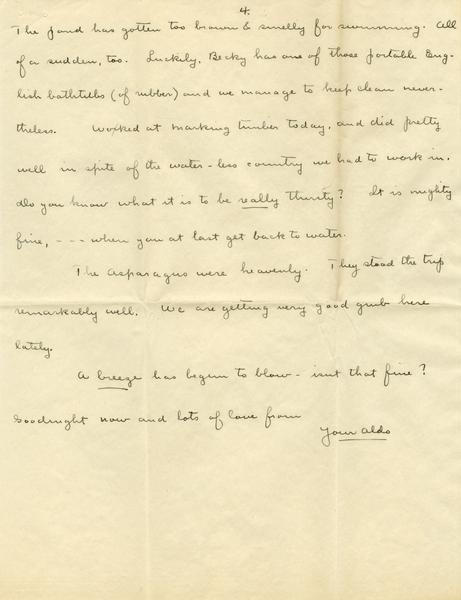 4.
The pond has gotten too brown & smelly for swimming. All
of a sudden, too. Luckily, Becky has one of those portable Eng-
lish bathtubs (of rubber) and we manage to keep clean never-
theless. Worked at marking timber today, and did pretty
well in spite of the water-less country we had to work in.
Do you know what it is to be really thirsty? It is mighty
fine, --- when you at last get back to water.
The asparagus were heavenly. They stood the trip
remarkably well. We are getting very good grub here
lately.
A breeze has begun to blow - isnt that fine?
Goodnight now and lots of love from
Your Aldo